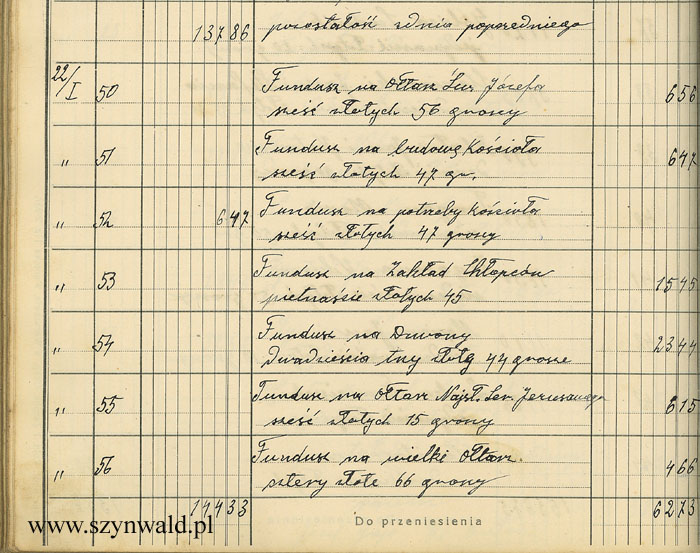 13786 pozostałość z dnia poprzedniego
22/I 50 Fundusz na Ołtarz Św. Józefa
sześć złotych 56 groszy 656
" 51 Fundusz na budowę Kościoła
sześć złotych 47 gr. 647
" 52 647 Fundusz na potrzeby Kościoła
sześć złotych 47 groszy
" 53 Fundusz na Zakład Chłopców
piętnaście złotych 45 1545
" 54 Fundusz na Dzwony
Dwadzieścia trzy złote 44 grosze 2344
" 55 Fundusz na Ołtarz Najśl. Ser. Jezusowego
sześć złotych 15 groszy 615
" 56 Fundusz na wielki Ołtarz
cztery złote 66 groszy 466
14433 Do przeniesienia 6273
www.szynwald.pl